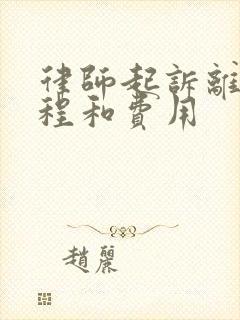 律師起訴離
程和費用
趙麗